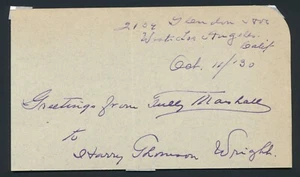 2102 Glendon Ave
West Los Angeles
Calif
Oct. 11/30
Greetings from Tully Marshall
to
Harry Thomson Wright.